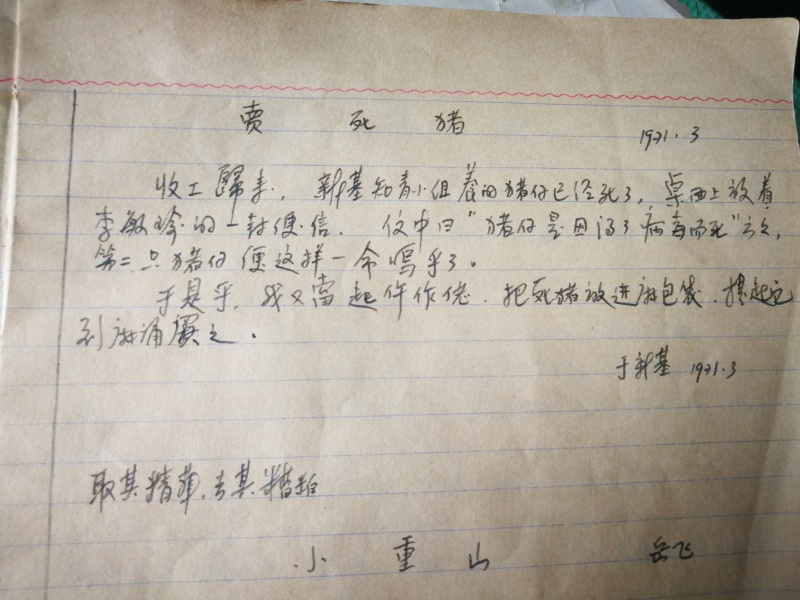 卖 死 猪
1971.3
收工归来，新基知青小组养的猪仔已经死了，桌面上放着
李敏珍的一封便信．仅中曰“猪仔是因海了病毒而死”云云，
第二只猪仔便这样一命呜乎了。
于是乎，我又当起仵作佬．把死猪放进麻包袋，揹起它
到麻涌卖之．
于新基 1971.3
取其精华，去其糟粕
小 重 山 岳飞